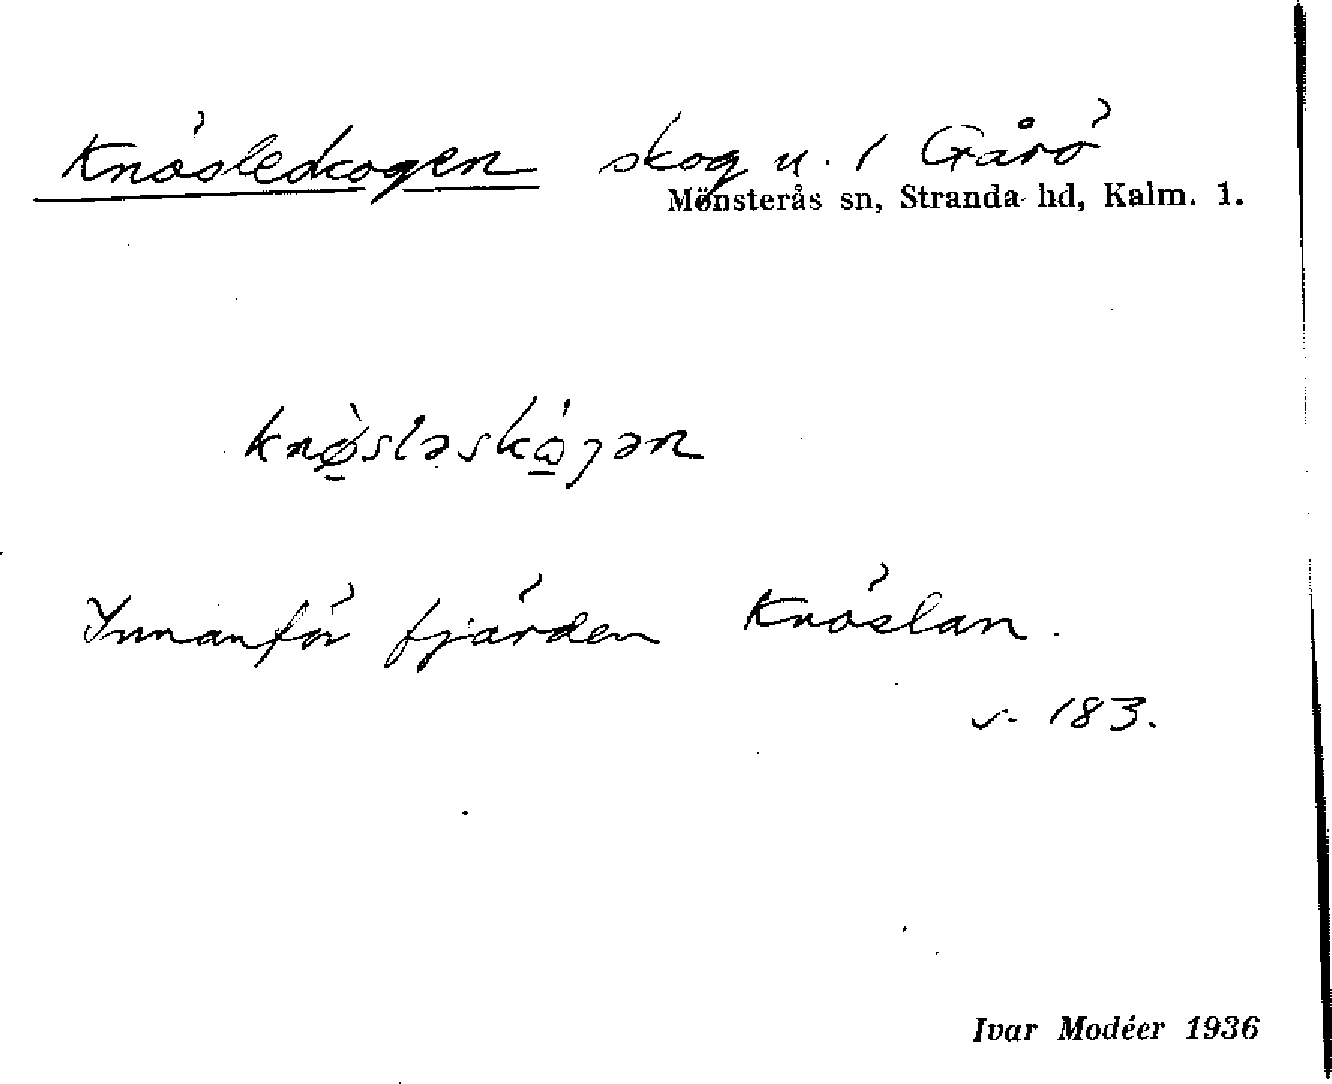 Knösleskogen skog u. 1 Gårö
Mönsterås sn, Stranda hd, Kalm. l.
knø̀sləskógən
Innanför fjärden Knöslan.
s. 183.
Ivar Modéer 1936